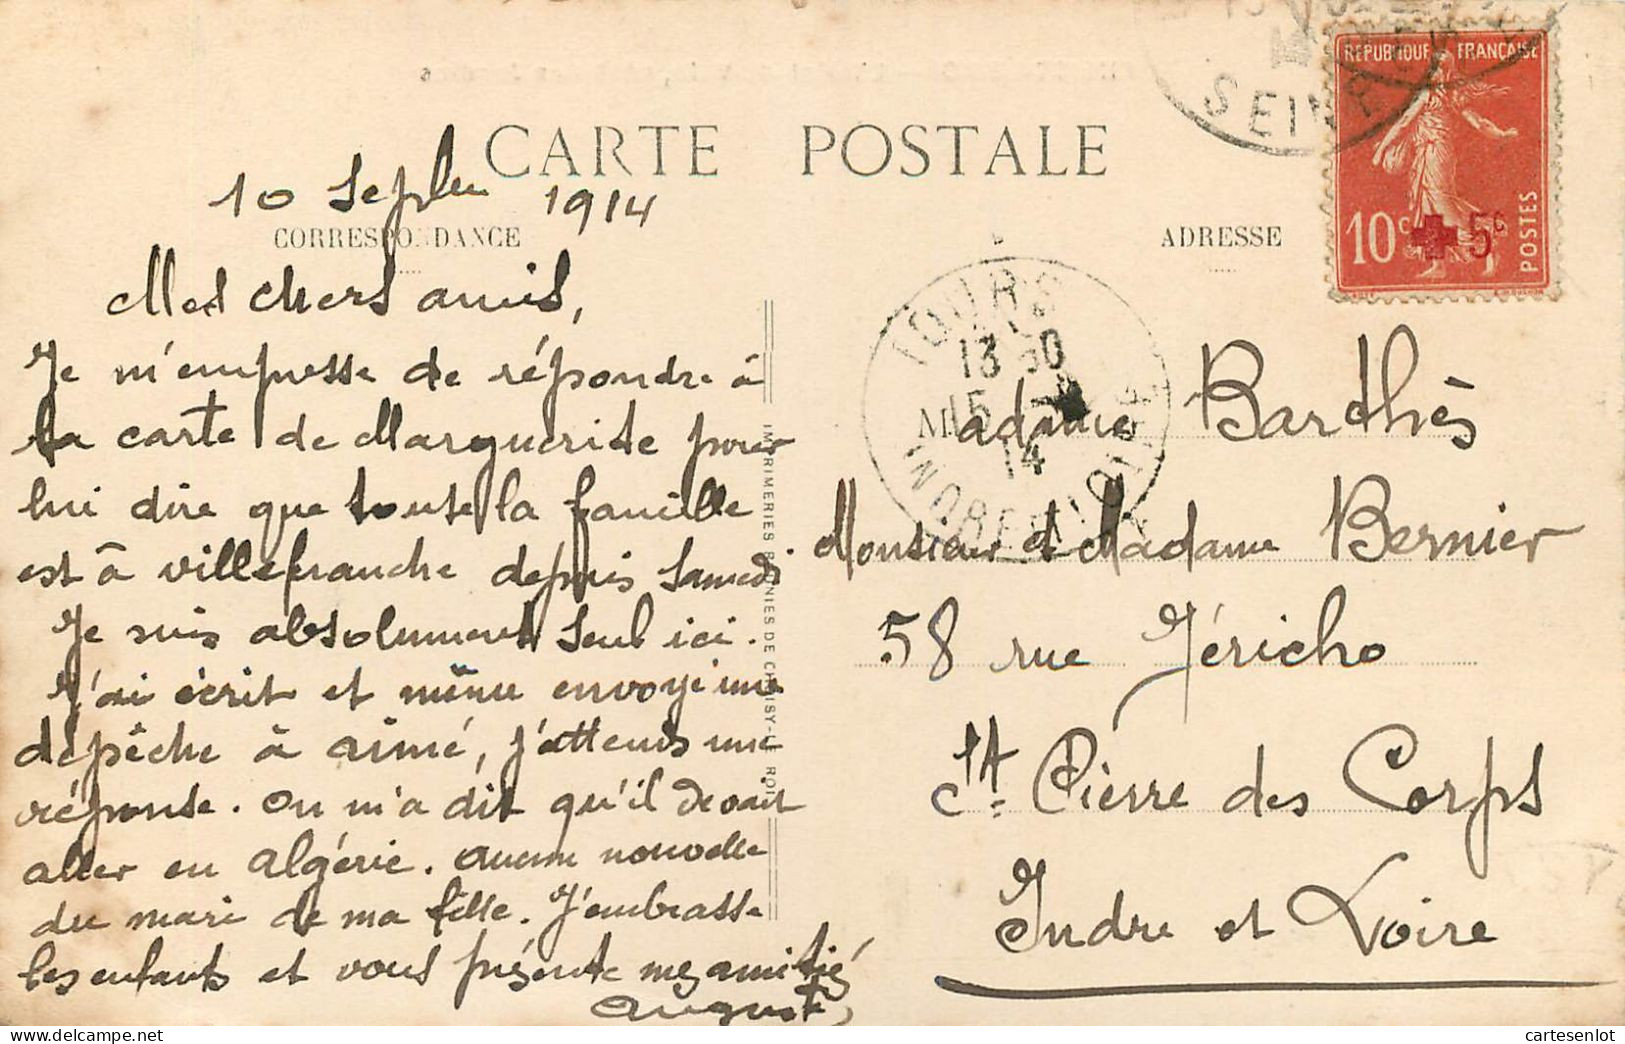 CARTE POSTALE
10 Septbre 1914
CORRESPONDANCE
ADRESSE
Mes chers amis,
Je m'empresse de répondre à
la carte de Marguerite pour
lui dire que toute la famille
est à villefranche depuis Samedi.
Je suis absolument seul ici.
J'ai écrit et même envoyé une
dépêche à aimé, j'attends une
réponse. On m'a dit qu'il devait
aller en Algérie. Aucune nouvelle
du mari de ma fille. J'embrasse
les enfants et vous présente mes amitiés
Auguste
IMPRIMERIES RÉUNIES DE CHOISY-LE-ROI
REPUBLIQUE FRANÇAISE
10c 5c
POSTES
SEINE
TOURS
13 30
15
14
INDRE ET LOIRE
Madame Barthès
Monsieur et Madame Bernier
58 rue Jéricho
St. Pierre des Corps
Indre et Loire
cartesenlot